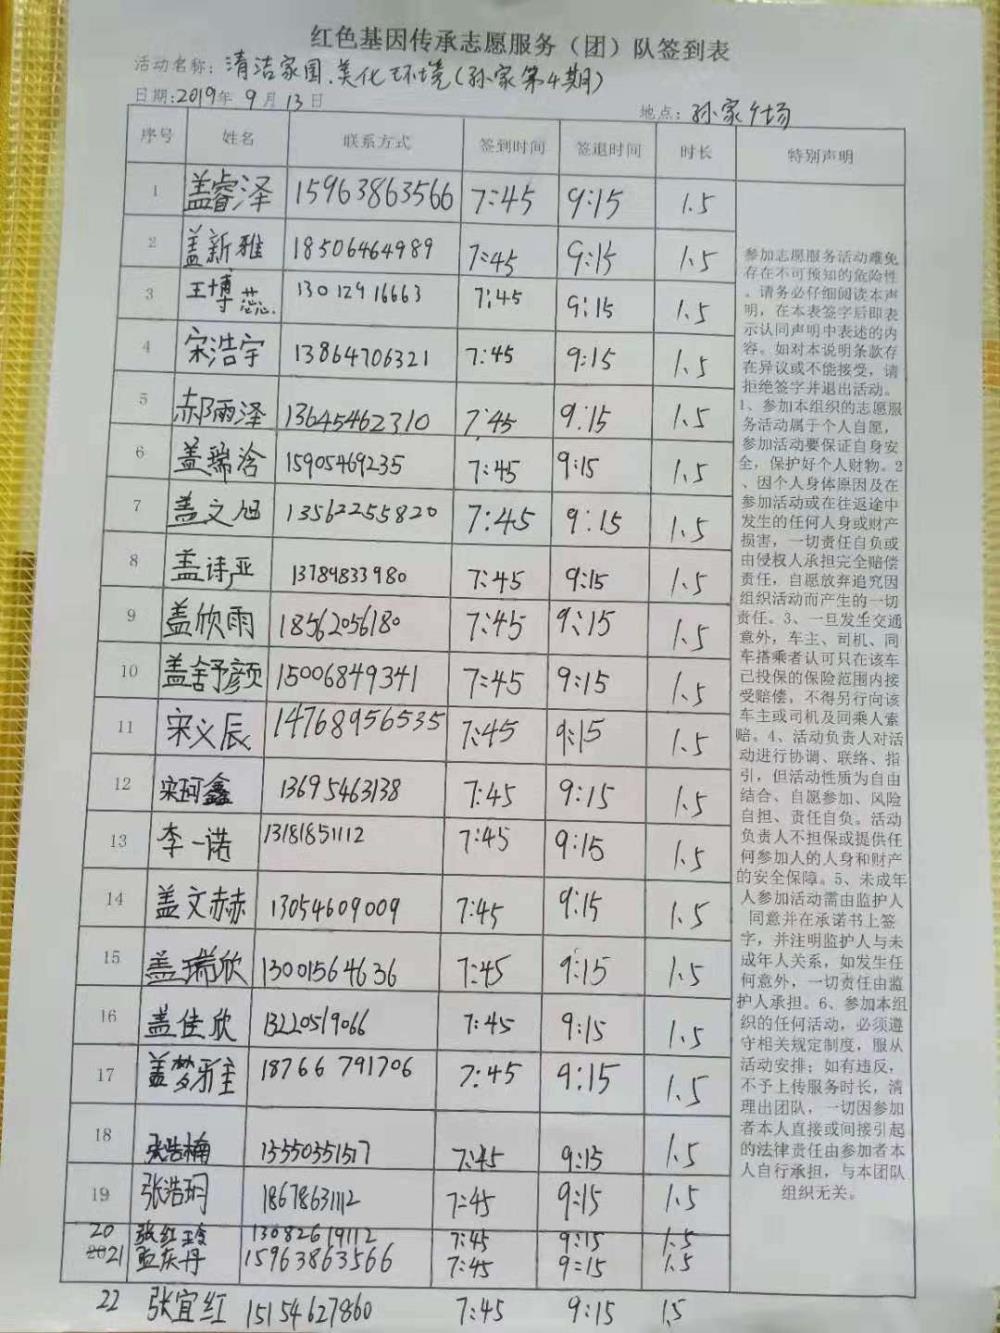 红色基因传承志愿服务（团）队签到表
活动名称：清洁家园.美化环境(孙家第4期)
日期:2019年9月13日 地点：孙家广场
序号 姓名 联系方式 签到时间 签退时间 时长 特别声明
1 盖睿泽 15963863566 7:45 9:15 1.5
2 盖新雅 18506464989 7:45 9:15 1.5
3 王博蕊 13012916663 7:45 9:15 1.5
4 宋浩宇 13864706321 7:45 9:15 1.5
5 郝雨泽 13645462310 7:45 9:15 1.5
6 盖瑞浛 15905469235 7:45 9:15 1.5
7 盖文旭 13562255820 7:45 9:15 1.5
8 盖诗亚 13789833980 7:45 9:15 1.5
9 盖欣雨 18562056180 7:45 9:15 1.5
10 盖舒颜 15006849341 7:45 9:15 1.5
11 宋义辰 14768956535 7:45 9:15 1.5
12 宋珂鑫 13695463138 7:45 9:15 1.5
13 李一诺 13181851112 7:45 9:15 1.5
14 盖文赫 13054609009 7:45 9:15 1.5
15 盖瑞欣 13001564636 7:45 9:15 1.5
16 盖佳欣 13220519066 7:45 9:15 1.5
17 盖梦雅 18766791706 7:45 9:15 1.5
18 张浩楠 13550351517 7:45 9:15 1.5
19 张浩玥 18678631112 7:45 9:15 1.5
20 张红玲 13082619112 7:45 9:15 1.5
21 孟庆丹 15963863566 7:45 9:15 1.5
22 张宜红 15154627860 7:45 9:15 1.5
参加志愿服务活动难免
存在不可预知的危险性
。请务必仔细阅读本声
明，在本表签字后即表
示认同声明中表述的内
容。如对本说明条款存
在异议或不能接受，请
拒绝签字并退出活动。
1、参加本组织的志愿服
务活动属于个人自愿，
参加活动要保证自身安
全，保护好个人财物。2
、因个人身体原因及在
参加活动或在往返途中
发生的任何人身或财产
损害，一切责任自负或
由侵权人承担完全赔偿
责任，自愿放弃追究因
组织活动而产生的一切
责任。3、一旦发生交通
意外，车主、司机、同
车搭乘者认可只在该车
已投保的保险范围内接
受赔偿，不得另行向该
车主或司机及同乘人索
赔。4、活动负责人对活
动进行协调、联络、指
引，但活动性质为自由
结合、自愿参加、风险
自担、责任自负。活动
负责人不担保或提供任
何参加人的人身和财产
的安全保障。5、未成年
人参加活动需由监护人
同意并在承诺书上签
字，并注明监护人与未
成年人关系，如发生任
何意外，一切责任由监
护人承担。6、参加本组
织的任何活动，必须遵
守相关规定制度，服从
活动安排；如有违反，
不予上传服务时长，清
理出团队，一切因参加
者本人直接或间接引起
的法律责任由参加者本
人自行承担，与本团队
组织无关。